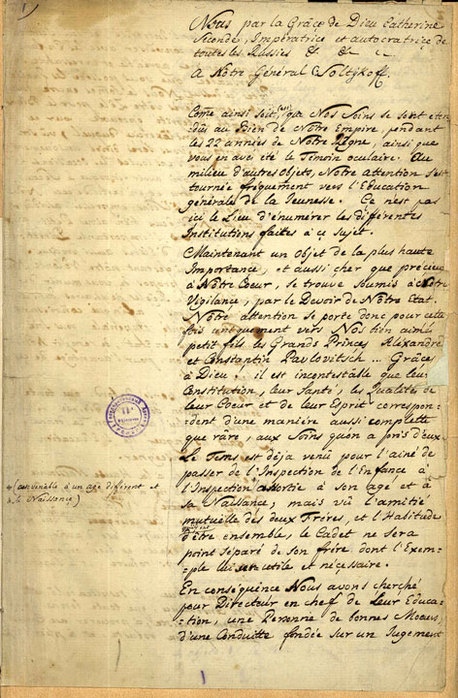 Nous par la Grâce de Dieu Catherine
Seconde, Impératrice et autocratrice de
toutes les Russies & & c
A Notre Général Soltÿkoff.
Come ainsi soit, que Nos Soins se sont éten
dus au Bien de Notre Empire, pendant
les 22 années de Notre Règne, ainsi que
vous en avés été le Temoin oculaire. Au
milieu d'autres Objets, Notre attention s'est
tournée fréquement vers l'Education
générale de la Jeunesse. Ce n'est pas
ici le Lieu d'énumérer les différentes
Institutions faites à ce sujet.
Maintenant un Objet de la plus haute
Importance, et aussi cher que précieux
à Notre Coeur, se trouve soumis à Notre
Vigilance, par le Devoir de Notre Etat.
Notre attention se porte donc pour cette
fois uniquement vers Nos bien aimés
petit fils les Grands Princes Alexandre
et Constantin Pavlovitsch ... Grâces
à Dieu .. il est incontestable que leur
Constitution, leur Santé, les Qualités de
leur Coeur et de leur Esprit correspon-
dent d'une manière aussi complette
que rare, aux Soins qu'on a pris d'eux
Le Tems est déja venû pour l'ainé de
passer de l'Inspection de l'Enfance à
l'Inspection assortie à son age et à
sa Naissance,
+ (convenable à un age différent et
à la Naissance)
mais vû l'amitié
mutuelle des deux Frères, et l'Habitude
d'être ensemble, le Cadet ne sera
point séparé de son frère dont l'Exem-
ple lui sera utile et nécessaire.
En conséquence Nous avons cherché
pour Directeur en chef de Leur Educa-
tion, une Personne de bonnes Moeurs,
d'une Conduitte fondée sur un Jugement